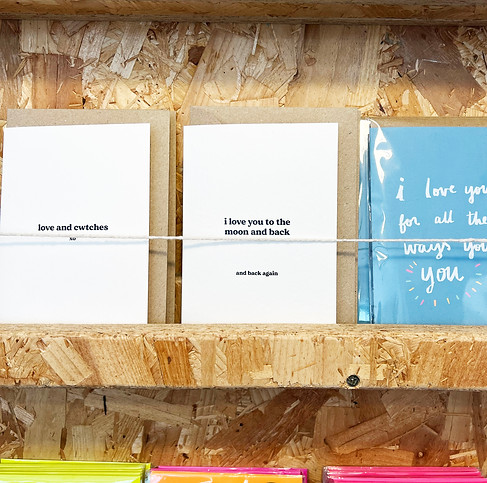 love and cwtches
xo
i love you to the
moon and back
and back again
i love you
for all the
ways you
you